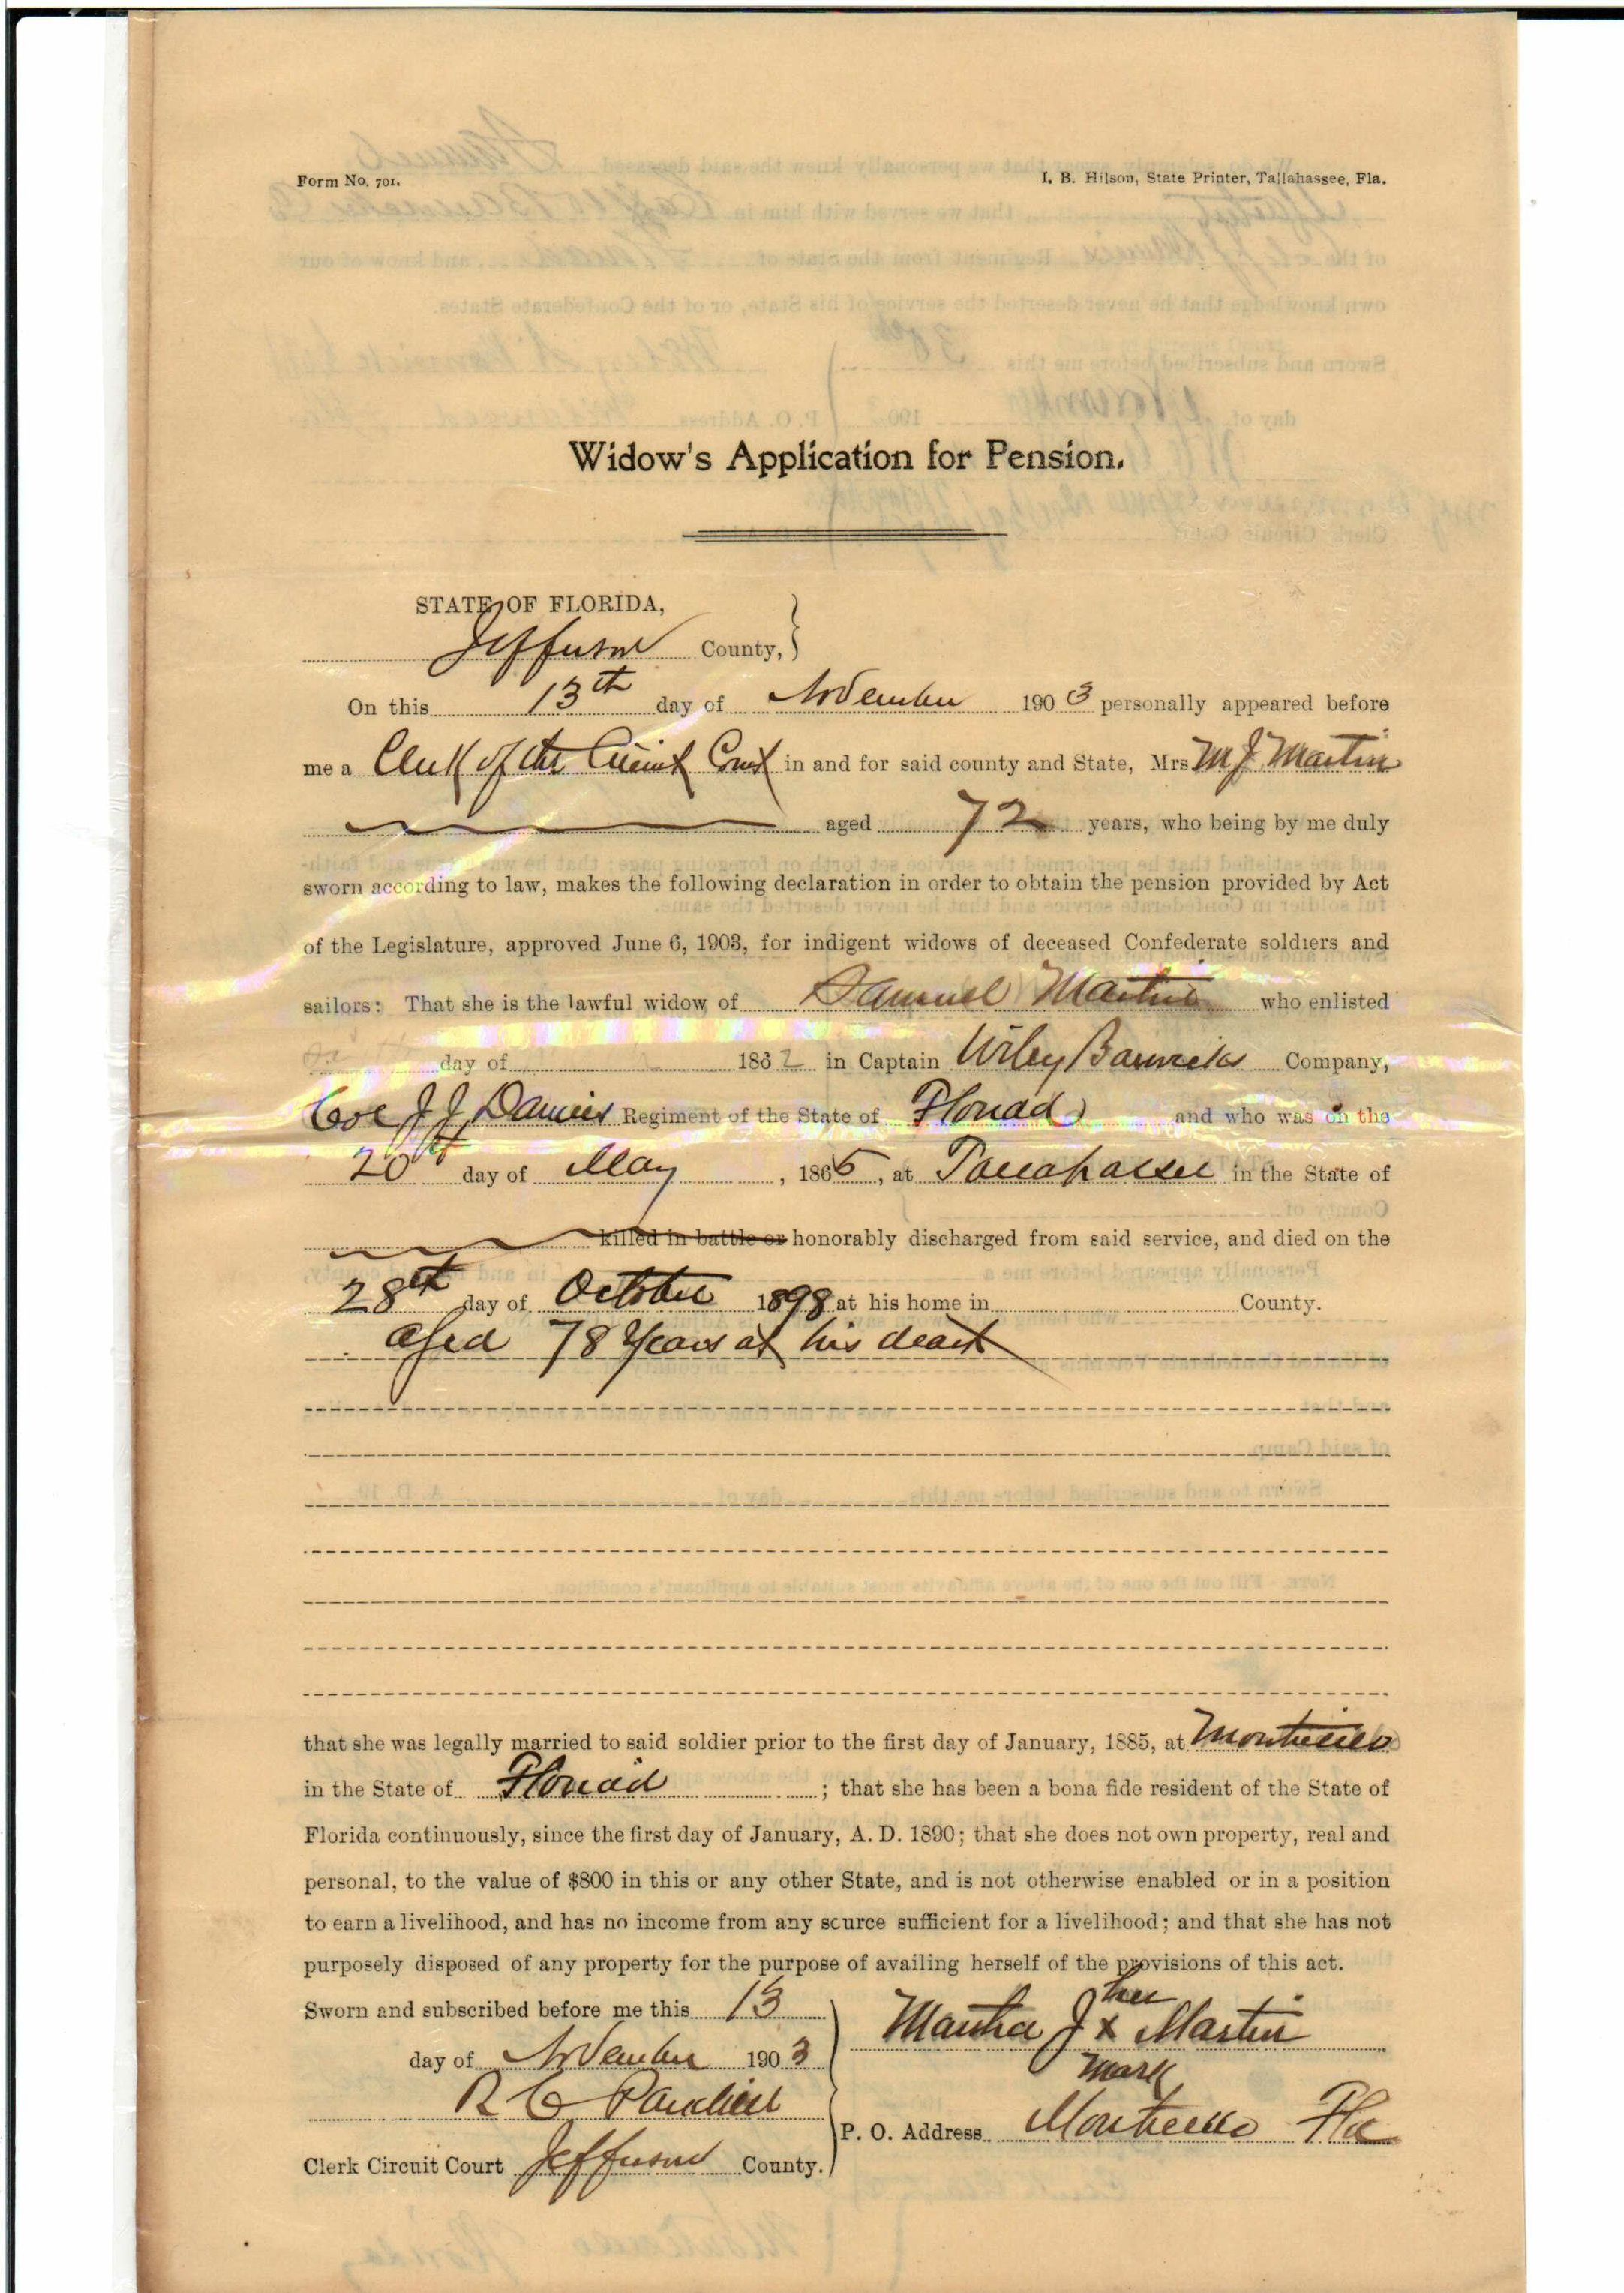 Form No. 701.
I. B. Hilson, State Printer, Tallahassee, Fla.
Widow's Application for Pension.
STATE OF FLORIDA,
Jefferson County,
On this 13th day of November 1903 personally appeared before
me a Clerk of the Circuit Court in and for said county and State, Mrs M J Martin
aged 72 years, who being by me duly
sworn according to law, makes the following declaration in order to obtain the pension provided by Act
of the Legislature, approved June 6, 1903, for indigent widows of deceased Confederate soldiers and
sailors: That she is the lawful widow of Samuel Martin who enlisted
day of 1862 in Captain Wiley Barwicks Company,
J J Daniels Regiment of the State of Florida and who was on the
20th day of May, 1865, at Tallahassee in the State of
killed in battle or honorably discharged from said service, and died on the
28th day of October 1898 at his home in County.
aged 78 Years at his death
that she was legally married to said soldier prior to the first day of January, 1885, at Monticello
in the State of Florida; that she has been a bona fide resident of the State of
Florida continuously, since the first day of January, A. D. 1890; that she does not own property, real and
personal, to the value of $800 in this or any other State, and is not otherwise enabled or in a position
to earn a livelihood, and has no income from any source sufficient for a livelihood; and that she has not
purposely disposed of any property for the purpose of availing herself of the provisions of this act.
Sworn and subscribed before me this 13
day of November 1903
R C
Clerk Circuit Court Jefferson County.
her
Martha J x Martin
mark
P. O. Address Monticello Fla